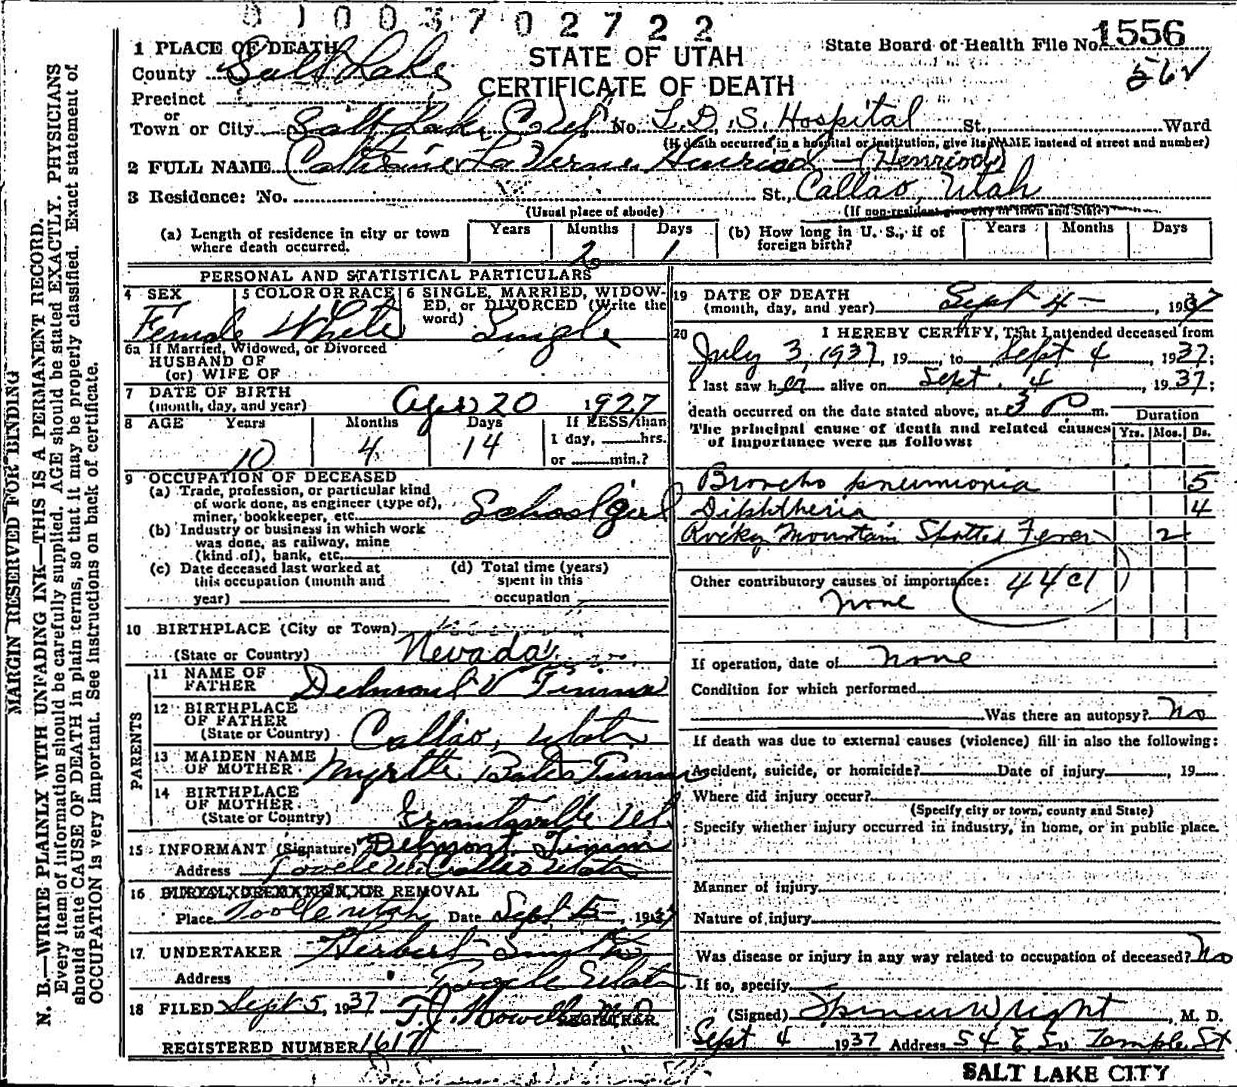 0100370 2722
1556
562
STATE OF UTAH
CERTIFICATE OF DEATH
State Board of Health File No. 1556
1 PLACE OF DEATH
County Salt Lake
Precinct
or
Town or City Salt Lake City No. L.D.S. Hospital St., Ward
(If death occurred in a hospital or institution, give its NAME instead of street and number)
2 FULL NAME Catherine La Verne Henriod - (Henriod)
3 Residence: No. St., Callao, Utah
(Usual place of abode) (If non-resident give city or town and State)
(a) Length of residence in city or town where death occurred. Years Months 2 Days 1
(b) How long in U. S., if of foreign birth? Years Months Days
PERSONAL AND STATISTICAL PARTICULARS
4 SEX Female
5 COLOR OR RACE White
6 SINGLE, MARRIED, WIDOWED, or DIVORCED (Write the word) Single
6a If Married, Widowed, or Divorced
HUSBAND OF
(or) WIFE OF
7 DATE OF BIRTH
(month, day, and year) Apr 20 1927
8 AGE Years 10 Months 4 Days 14 If LESS than
1 day, hrs.
or min.?
9 OCCUPATION OF DECEASED
(a) Trade, profession, or particular kind
of work done, as engineer (type of),
miner, bookkeeper, etc. School girl
(b) Industry or business in which work
was done, as railway, mine
(kind of), bank, etc.
(c) Date deceased last worked at
this occupation (month and
year)
(d) Total time (years)
spent in this
occupation
10 BIRTHPLACE (City or Town)
(State or Country) Nevada
PARENTS
11 NAME OF
FATHER Delmont V Timm
12 BIRTHPLACE
OF FATHER
(State or Country) Callao, Utah
13 MAIDEN NAME
OF MOTHER Myrtle Bates Timm
14 BIRTHPLACE
OF MOTHER
(State or Country) Grantsville Ut.
15 INFORMANT (Signature) Delmont Timm
Address Tooele Ut. Callao Utah
16 BURIAL, CREMATION, OR REMOVAL
Place Tooele Utah Date Sept 5 - , 1937
17 UNDERTAKER Herbert
Address Tooele Utah
18 FILED Sept 5, 1937 T.J. Howells M.D.
REGISTRAR
REGISTERED NUMBER 1617
19 DATE OF DEATH
(month, day, and year) Sept 4 - , 1937
20 I HEREBY CERTIFY, That I attended deceased from
July 3, 1937, 19 , to Sept 4 1937;
I last saw her alive on Sept. 4 , 1937;
death occurred on the date stated above, at 3 P m.
Duration
The principal cause of death and related causes
of importance were as follows: Yrs. Mos. Ds.
Broncho pneumonia 5
Diphtheria 4
Rocky Mountain Spotted Fever 2
Other contributory causes of importance: 44 c1
none
If operation, date of none
Condition for which performed
Was there an autopsy? No
If death was due to external causes (violence) fill in also the following:
Accident, suicide, or homicide? Date of injury , 19
Where did injury occur?
(Specify city or town, county and State)
Specify whether injury occurred in industry, in home, or in public place.
Manner of injury
Nature of injury
Was disease or injury in any way related to occupation of deceased? No
If so, specify
(Signed) Spencer Wright , M. D.
Sept 4 1937 Address 54 E. So. Temple St
SALT LAKE CITY
MARGIN RESERVED FOR BINDING
N. B.—WRITE PLAINLY WITH UNFADING INK—THIS IS A PERMANENT RECORD.
Every item of information should be carefully supplied. AGE should be stated EXACTLY. PHYSICIANS
should state CAUSE OF DEATH in plain terms, so that it may be properly classified. Exact statement of
OCCUPATION is very important. See instructions on back of certificate.